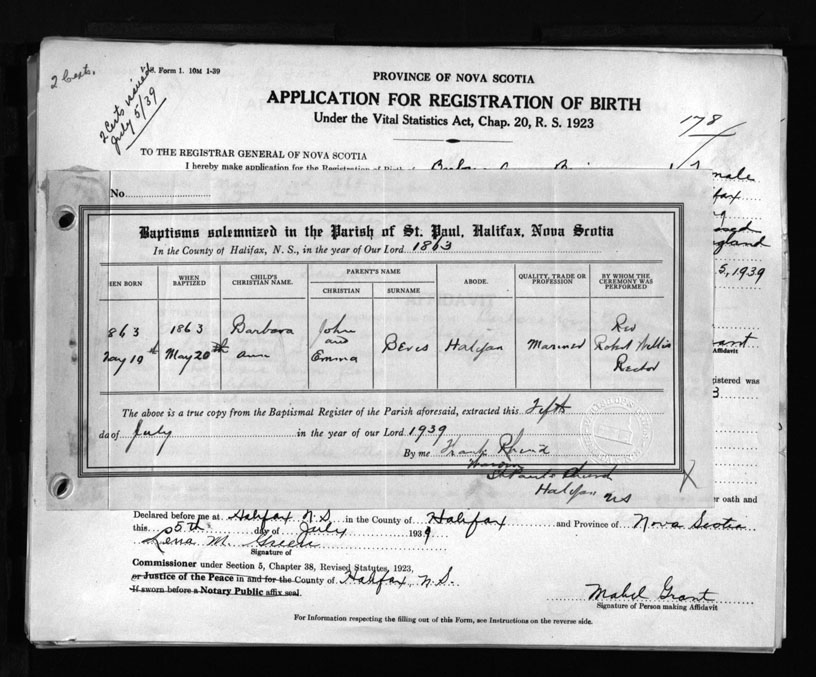 2 Certs.
V.S. Form 1. 10M 1-39
2 Certs issued
July 5/39
PROVINCE OF NOVA SCOTIA
APPLICATION FOR REGISTRATION OF BIRTH
Under the Vital Statistics Act, Chap. 20, R. S. 1923
178
TO THE REGISTRAR GENERAL OF NOVA SCOTIA
I hereby make application for the Registration of Birth of
male
fax
gland
5, 1939
ant
Affidavit
gistered was
3
No
Baptisms solemnized in the Parish of St. Paul, Halifax, Nova Scotia
In the County of Halifax, N. S., in the year of Our Lord 1863
EN BORN
WHEN BAPTIZED
CHILD'S CHRISTIAN NAME.
PARENT'S NAME
CHRISTIAN
SURNAME
ABODE.
QUALITY, TRADE OR PROFESSION
BY WHOM THE CEREMONY WAS PERFORMED
863 1863 Barbara John Rev
and Bevis Halifax Mariner Robert Willis
ay 19th May 20th Ann Emma Rector
The above is a true copy from the Baptismal Register of the Parish aforesaid, extracted this Fifth
da of July in the year of our Lord 1939
By me Frank Rhind
Warden
St Pauls Church
Halifax NS
er oath and
Declared before me at Halifax N.S. in the County of Halifax and Province of Nova Scotia
this 5th day of July 1939
Lena M. Green
Signature of
Commissioner under Section 5, Chapter 38, Revised Statutes, 1923,
or Justice of the Peace in and for the County of Halifax, N.S.
If sworn before a Notary Public affix seal
Mabel Grant
Signature of Person making Affidavit
For Information respecting the filling out of this Form, see Instructions on the reverse side.